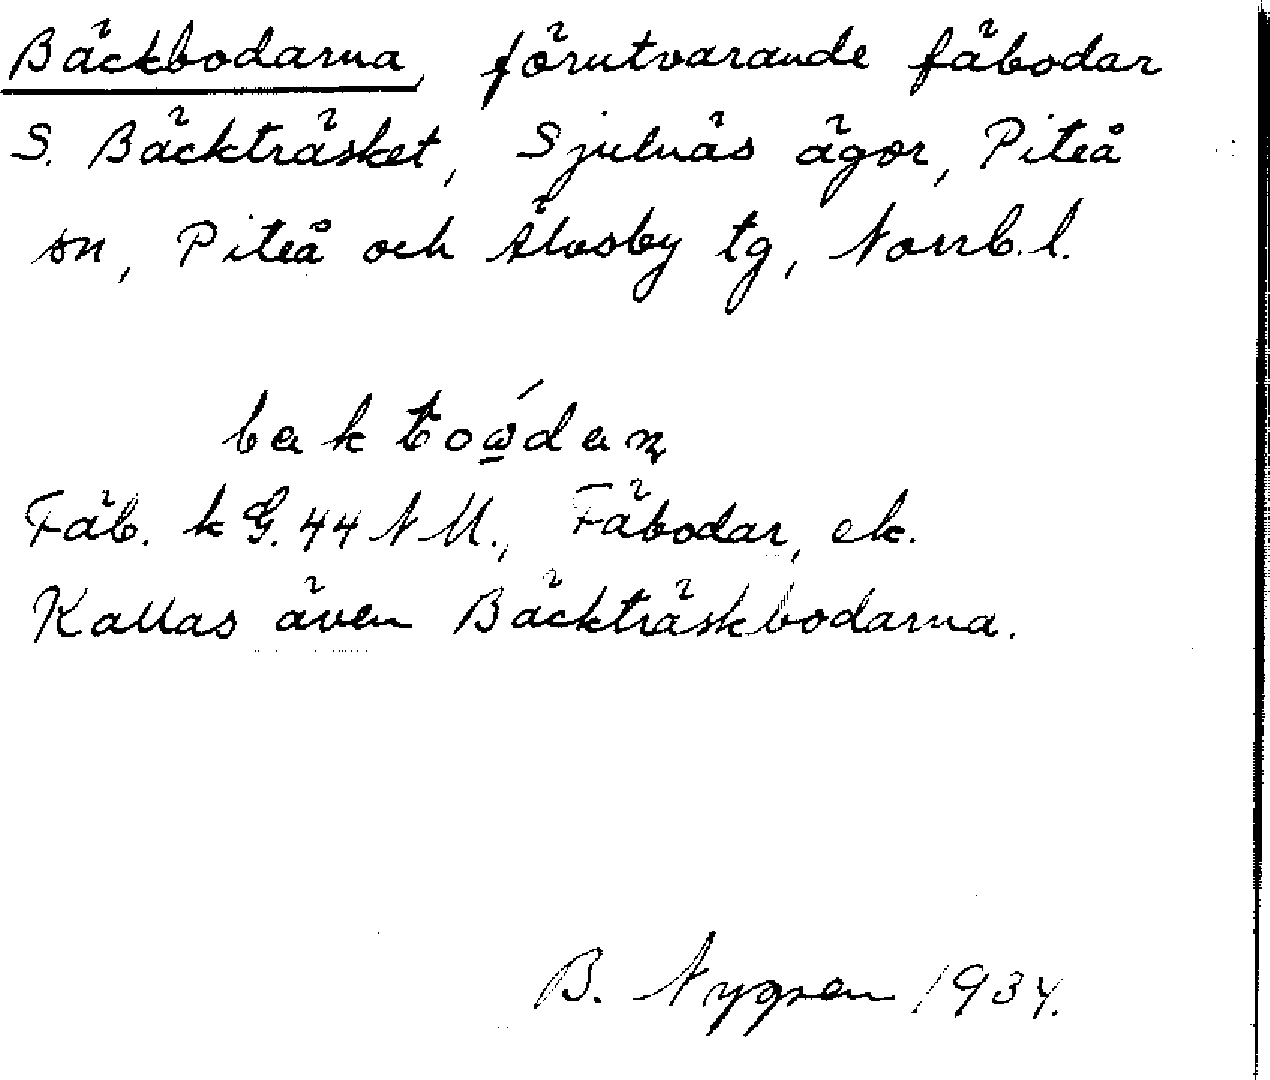 Bäckbodarna, förutvarande fäbodar
S. Bäckträsket, Sjulnäs ägor, Piteå
sn, Piteå och Älvsby tg, Norrb. l.
Fäb. k G. 44 N M., Fäbodar, ek.
Kallas även Bäckträskbodarna.
B. Nygren 1934.